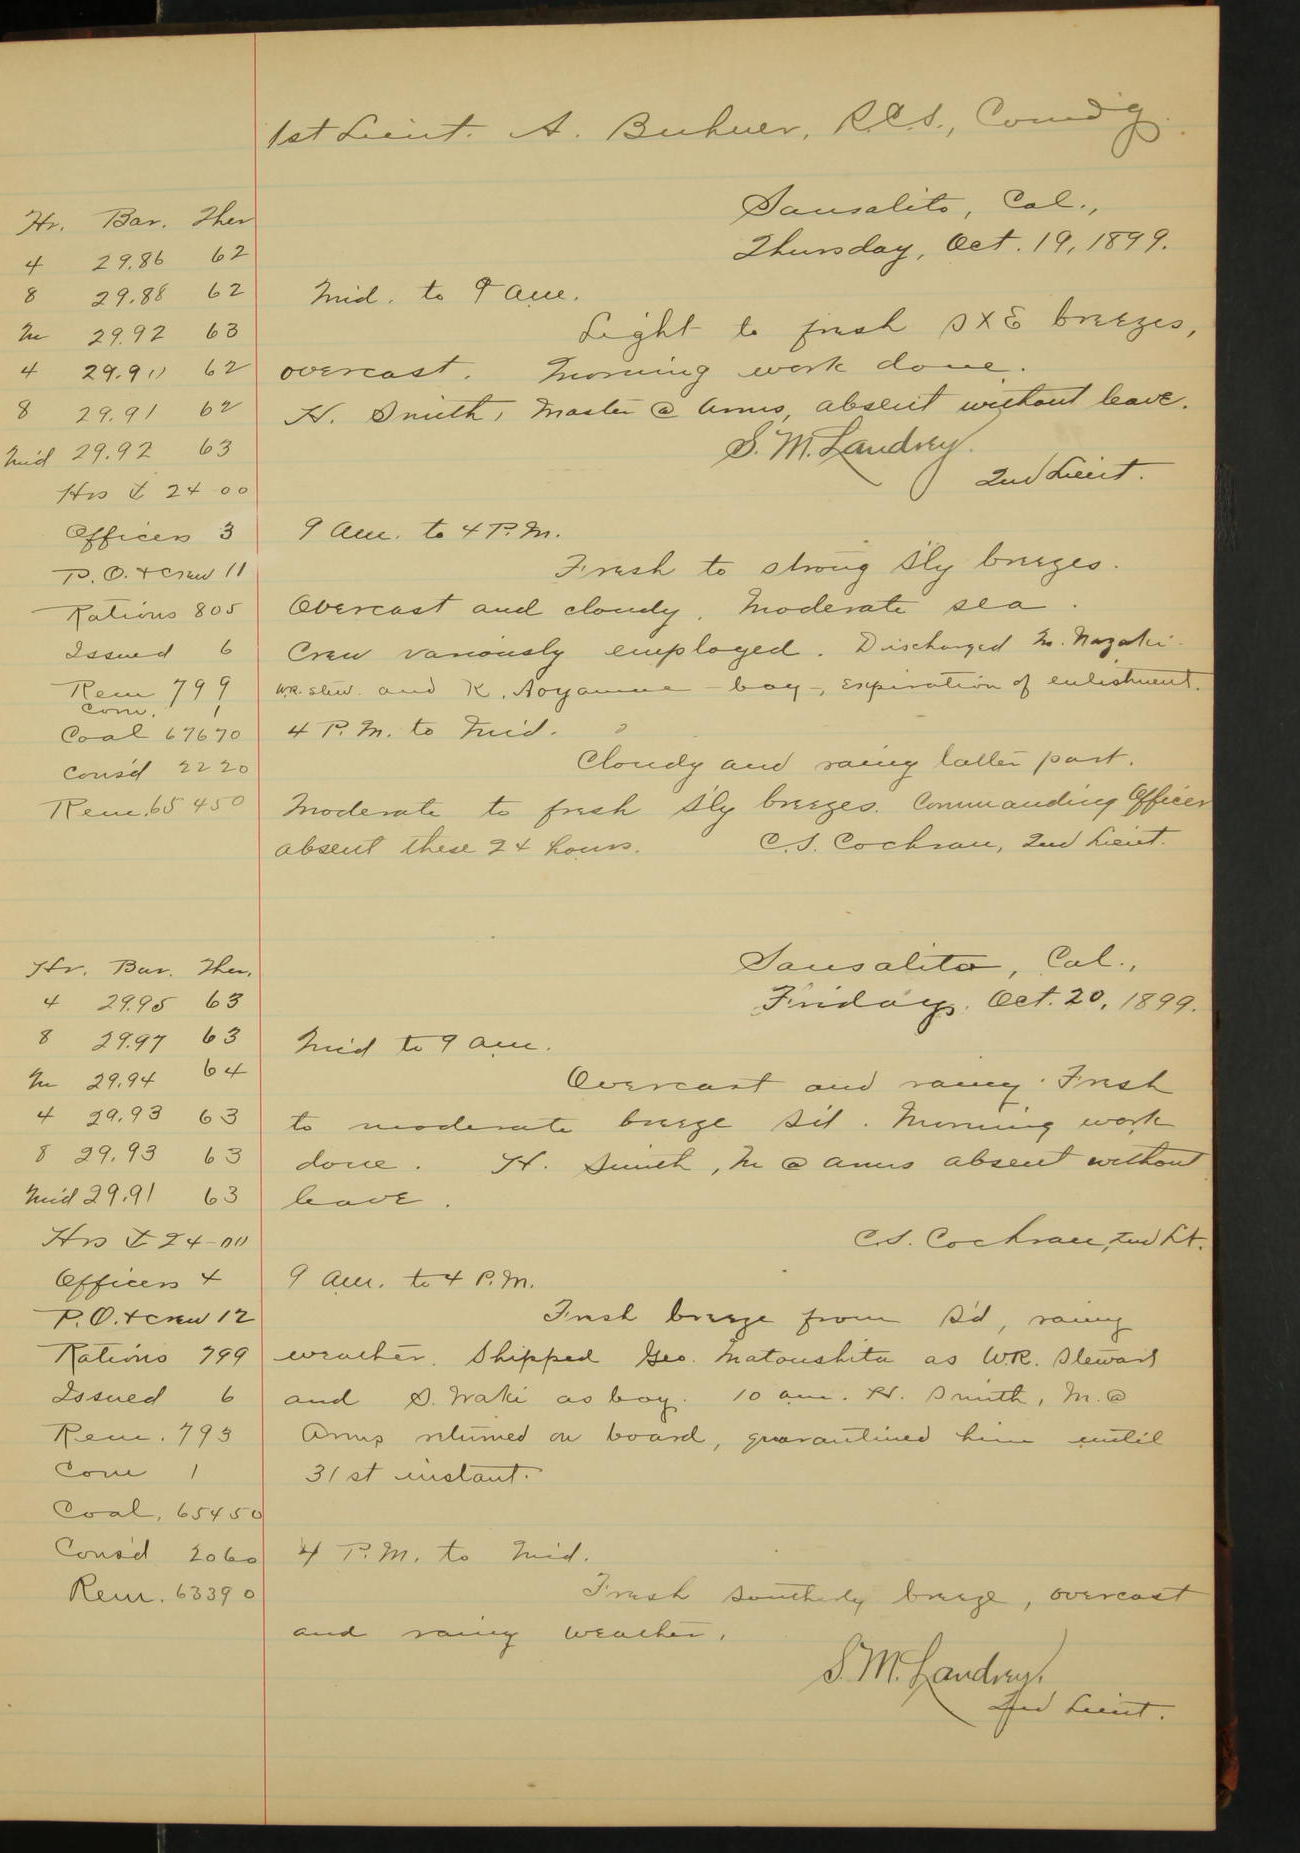 1st Lieut. A. Buhner, R.C.S., Comd'g.
Sausalito, Cal.,
Thursday, Oct. 19, 1899.
Hr. Bar. Ther
4 29.86 62
8 29.88 62
M 29.92 63
4 29.90 62
8 29.91 62
Mid 29.92 63
Hrs 24 00
Officers 3
P.O. & crew 11
Rations 805
Issued 6
Rem 799
Com. 1
Coal 67670
Cons'd 2220
Rem. 65450
Mid. to 9 am.
Light to fresh SXE breezes,
overcast. Morning work done.
H. Smith, Master @ Arms, absent without leave.
S. M. Landrey.
2nd Lieut.
9 am. to 4 P.M.
Fresh to strong S'ly breezes.
Overcast and cloudy. Moderate sea.
Crew variously employed. Discharged M. Nagaki
W.R. stew. and K. Aoyama - boy -, expiration of enlistment.
4 P.M. to Mid.
Cloudy and rainy latter part.
Moderate to fresh S'ly breezes. Commanding Officer
absent these 24 hours. C.S. Cochran, 2nd Lieut.
Sausalito, Cal.,
Friday, Oct. 20, 1899.
Hr. Bar. Ther.
4 29.95 63
8 29.97 63
M 29.94 64
4 29.93 63
8 29.93 63
Mid 29.91 63
Hrs 24-00
Officers 4
P.O. & crew 12
Rations 799
Issued 6
Rem. 793
Com 1
Coal, 65450
Cons'd 2060
Rem. 63390
Mid to 9 am.
Overcast and rainy. Fresh
to moderate breeze S'd. Morning work
done. H. Smith, M @ arms absent without
leave.
C.S. Cochran, 2nd Lt.
9 am. to 4 P.M.
Fresh breeze from S'd, rainy
weather. Shipped Geo. Matoushita as W.R. Steward
and S. Iwaki as boy. 10 am. H. Smith, M. @
Arms returned on board, quarantined him until
31st instant.
4 P.M. to Mid.
Fresh southerly breeze, overcast
and rainy weather.
S. M. Landrey.
2nd Lieut.